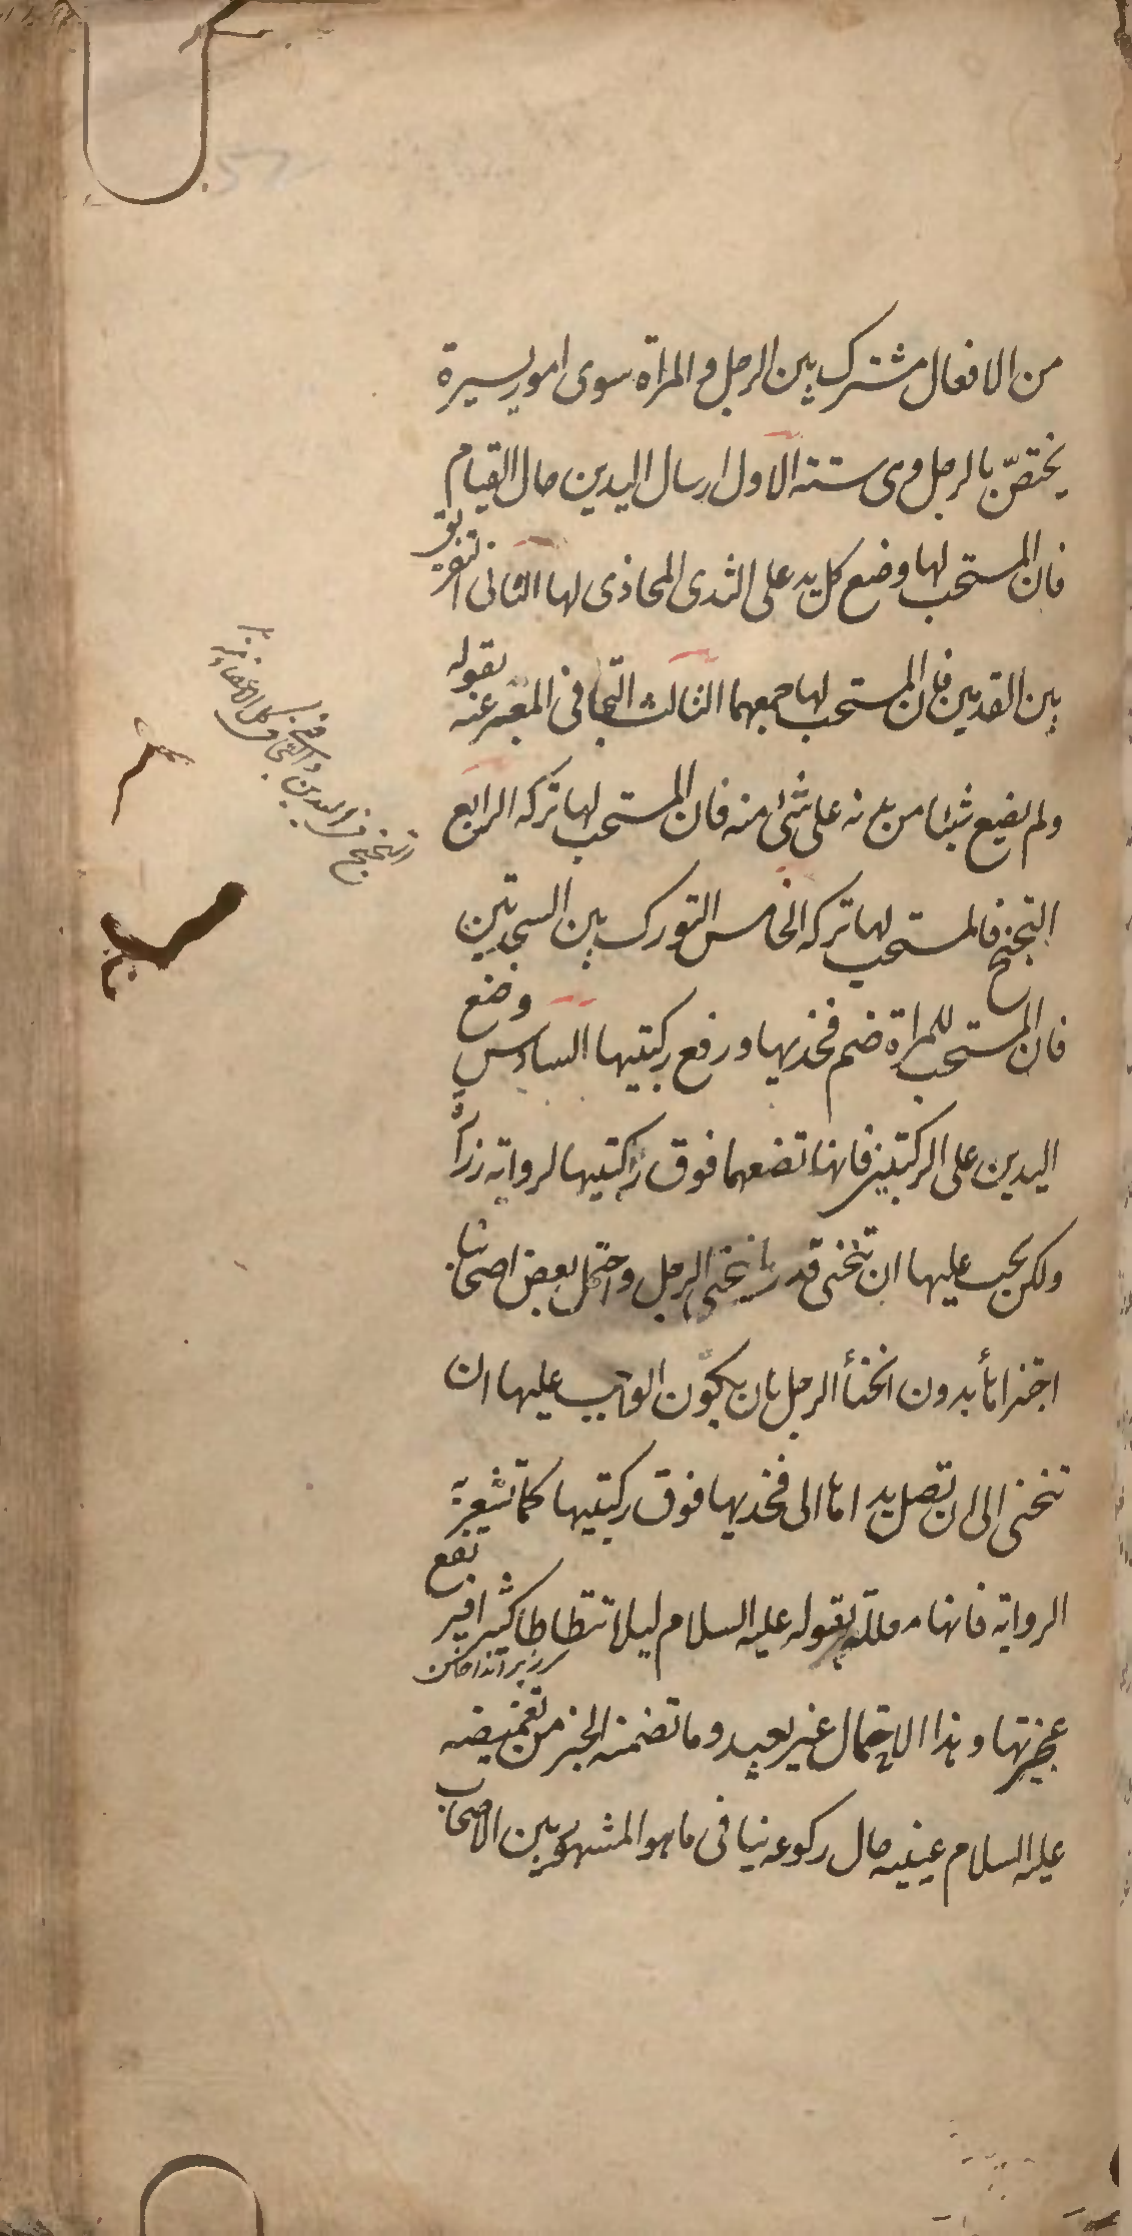 من الافعال مشترك بين الرجل و المراة سوى امور يسيرة
يختصّ بالرجل وى ستة الاول ارسال اليدين حال القيام
فان المستحب لها وضع كل يد على الثدى المحاذى لها الثانى التفريق
بين القدمين فان المستحب لها جمعهما الثالث التجافى المعبّر عنه بقوله
ولم يضع شيئا من بدنه على شئ منه فان المستحب لها تركه الرابع
التجنح فالمستحب لها تركه الخامس التورك بين السجدتين
فان المستحب للمراة ضم فخذيها ورفع ركبتيها السادس وضع
اليدين على الركبتين فانها تضعهما فوق ركبتيها لرواية زرارة
ولكن يجب عليها ان تنحنى قدر ما ينحنى الرجل واحتمل بعض اصحابنا
اجتزائها بدون انحنأ الرجل بان يكون الواجب عليها ان
تنحنى الى ان تصل يداها الى فخذيها فوق ركبتيها كما تشعر به
الرواية فانها معللة بقوله عليه السلام ليلا تتطاطا كثيرا فيرتفع
عجيزتها وهذا الاحتمال غير بعيد وما تضمنه الخبر من تغميضه
عليه السلام عينيه حال ركوعه ينافى ما هو المشهور بين الاصحاب